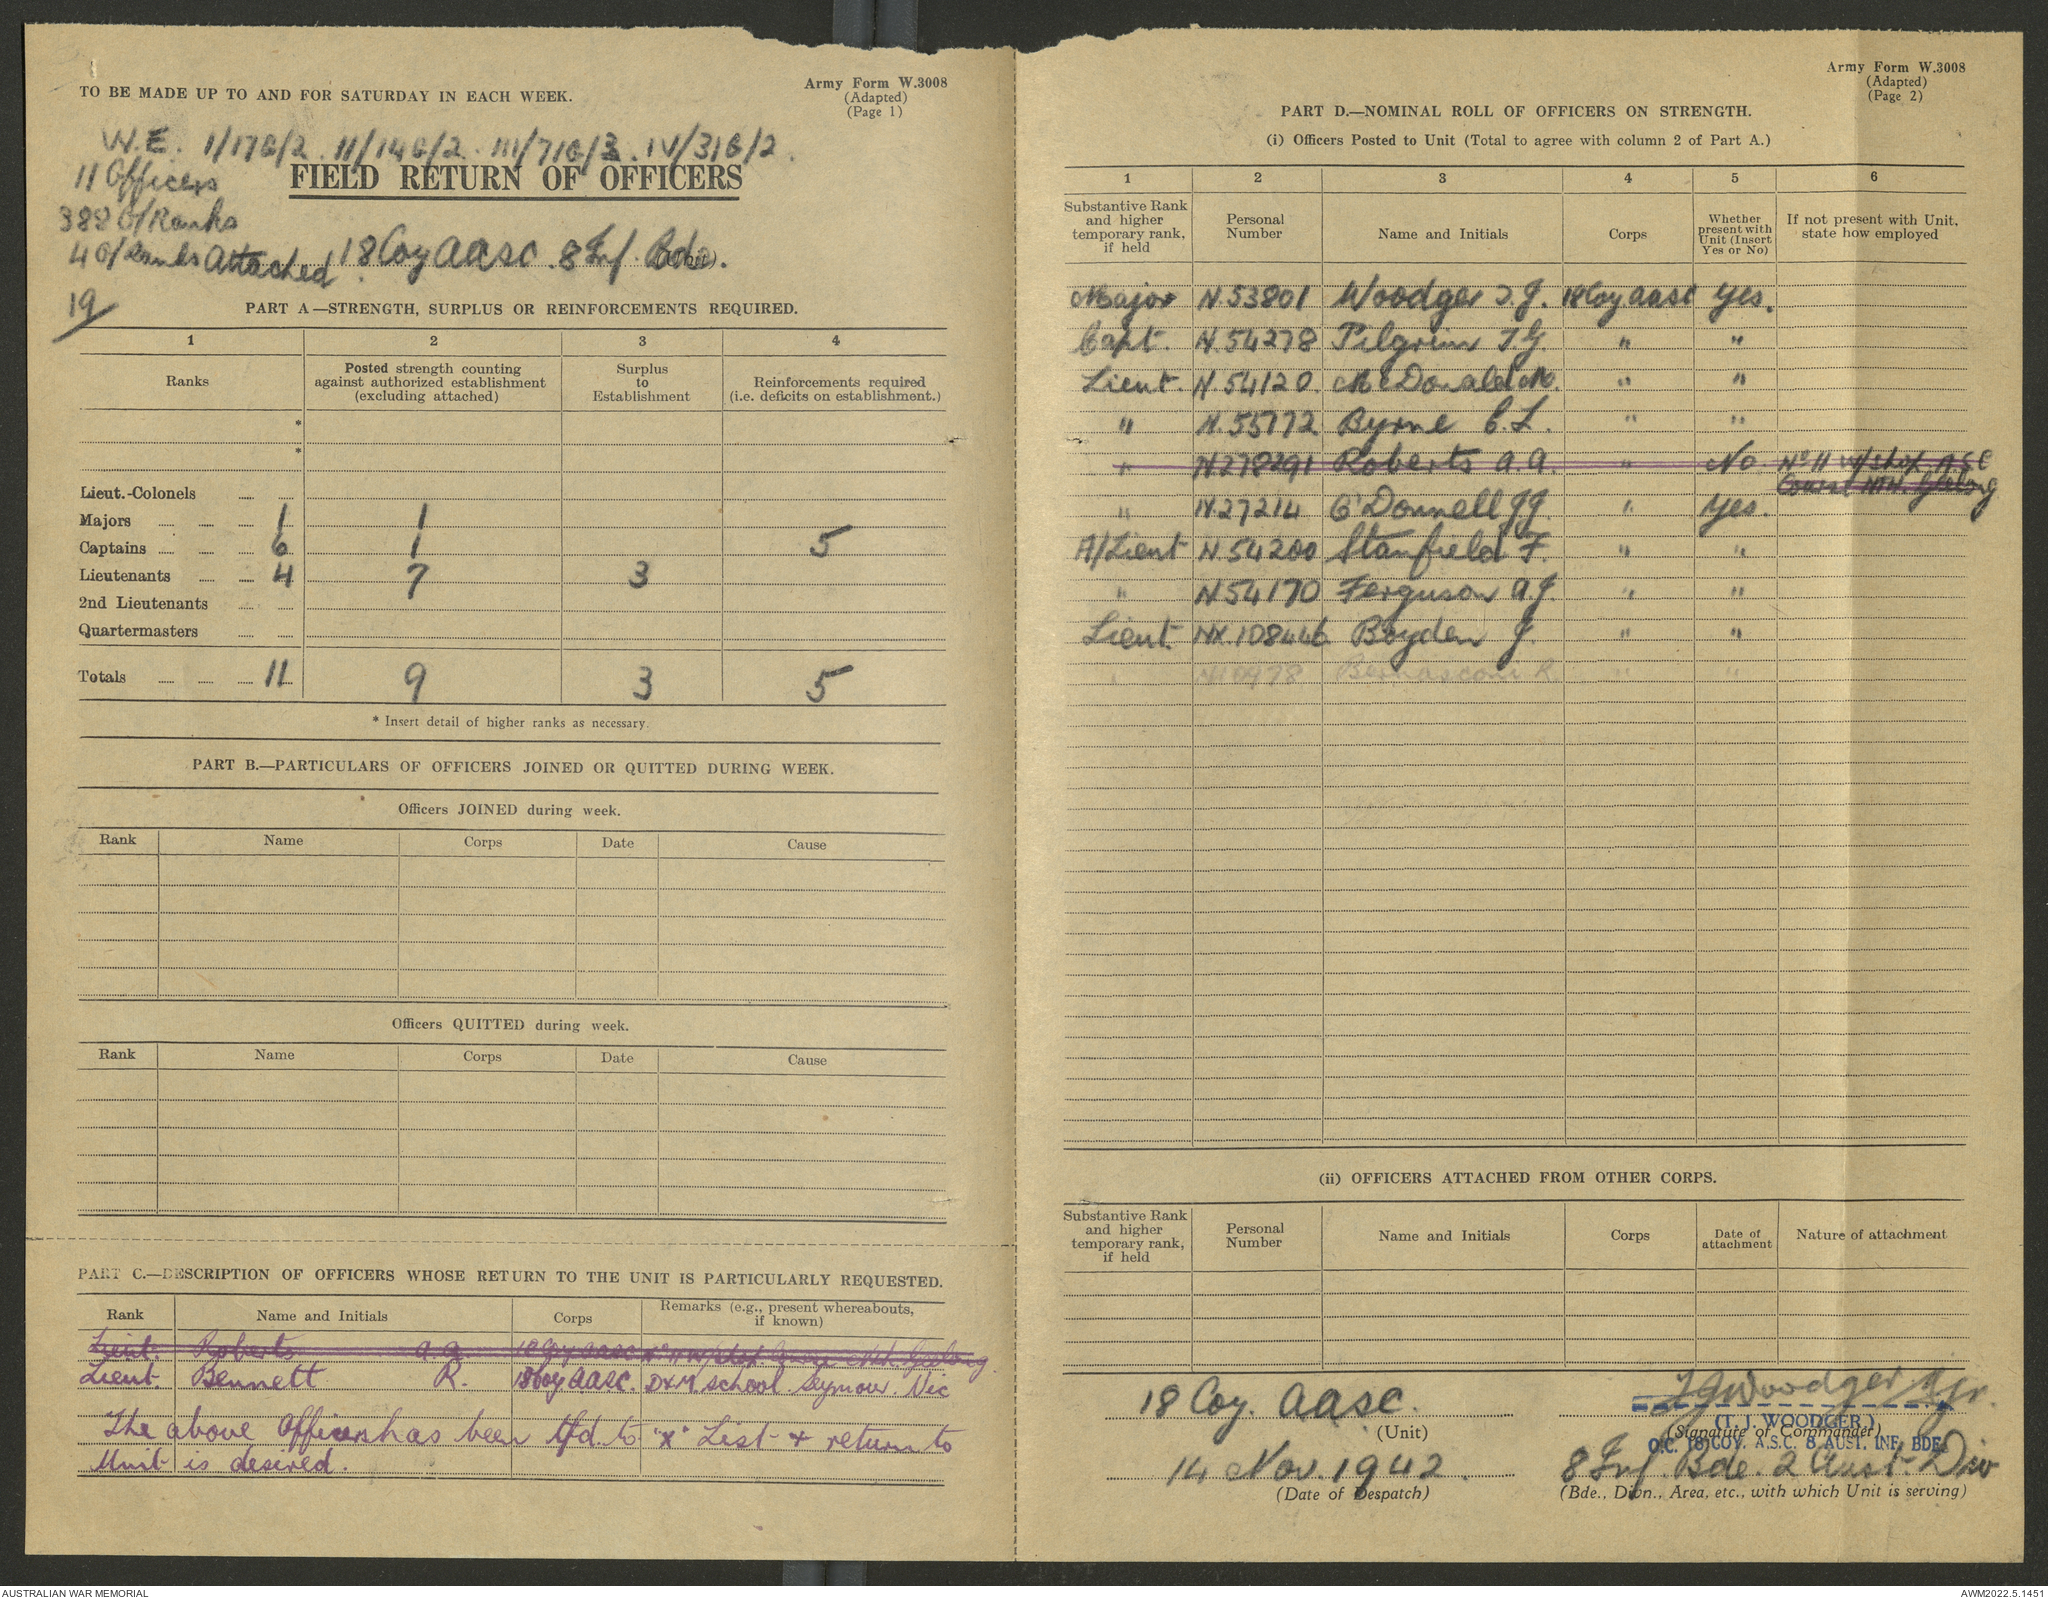 TO BE MADE UP TO AND FOR SATURDAY IN EACH WEEK.
Army Form W.3008
(Adapted)
(Page 1)
W.E. I/1716/2. II/1416/2. III/716/3. IV/316/2.
11 Officers
FIELD RETURN OF OFFICERS
388 O/Ranks
4 O/Ranks Attached
18 Coy AASC. 8 Inf. Bde.
19/
PART A—STRENGTH, SURPLUS OR REINFORCEMENTS REQUIRED.
1 2 3 4
Ranks
Posted strength counting against authorized establishment (excluding attached)
Surplus to Establishment
Reinforcements required (i.e. deficits on establishment.)
*
*
Lieut.-Colonels
Majors 1 1
Captains 6 1 5
Lieutenants 4 7 3
2nd Lieutenants
Quartermasters
Totals 11 9 3 5
* Insert detail of higher ranks as necessary.
PART B.—PARTICULARS OF OFFICERS JOINED OR QUITTED DURING WEEK.
Officers JOINED during week.
Rank Name Corps Date Cause
Officers QUITTED during week.
Rank Name Corps Date Cause
PART C.—DESCRIPTION OF OFFICERS WHOSE RETURN TO THE UNIT IS PARTICULARLY REQUESTED.
Rank Name and Initials Corps Remarks (e.g., present whereabouts, if known)
Lieut. Roberts A.A. 18 Coy AASC No 11 W/shop. Course Nth. Geelong.
Lieut. Bennett R. 18 Coy AASC. D&M School. Seymour. Vic
The above Officer has been tfd. to "X" List & return to
Unit is desired.
Army Form W.3008
(Adapted)
(Page 2)
PART D.—NOMINAL ROLL OF OFFICERS ON STRENGTH.
(i) Officers Posted to Unit (Total to agree with column 2 of Part A.)
1 2 3 4 5 6
Substantive Rank and higher temporary rank, if held
Personal Number
Name and Initials
Corps
Whether present with Unit (Insert Yes or No)
If not present with Unit, state how employed
Major N.53801 Woodger T.J. 18 Coy AASC Yes.
Capt. N.54278 Pilgrim T.G. " "
Lieut. N.54120 McDonald M. " "
" N.55772 Byrne C.L. " "
" N278291 Roberts A.A. " No. No 11 W/shop. ASC
Course Nth. Geelong
" N27214 O'Donnell J.J. " Yes.
A/Lieut N.54200 Stanfield F. " "
" N.54170 Ferguson A.J. " "
Lieut. NX.108446 Boyden J. " "
Bernasconi R. " "
(ii) OFFICERS ATTACHED FROM OTHER CORPS.
Substantive Rank and higher temporary rank, if held
Personal Number
Name and Initials
Corps
Date of attachment
Nature of attachment
18 Coy. AASC.
(Unit)
T J Woodger Mjr.
(T. J. WOODGER.)
(Signature of Commander)
O.C. 18 COY. A.S.C. 8 AUST. INF. BDE.
14 Nov. 1942.
(Date of Despatch)
8 Inf. Bde. 2 Aust. Div
(Bde., Divn., Area, etc., with which Unit is serving)
AUSTRALIAN WAR MEMORIAL
AWM2022.5.1451